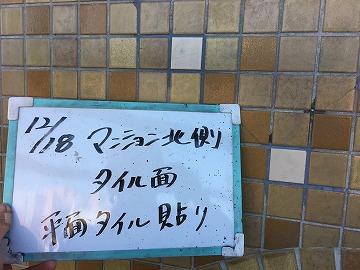 12/18 マンション北側
タイル面
平面タイル貼り